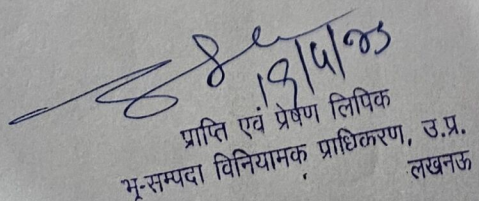 प्राप्ति एवं प्रेषण लिपिक
भू-सम्पदा विनियामक प्राधिकरण, उ.प्र.
लखनऊ